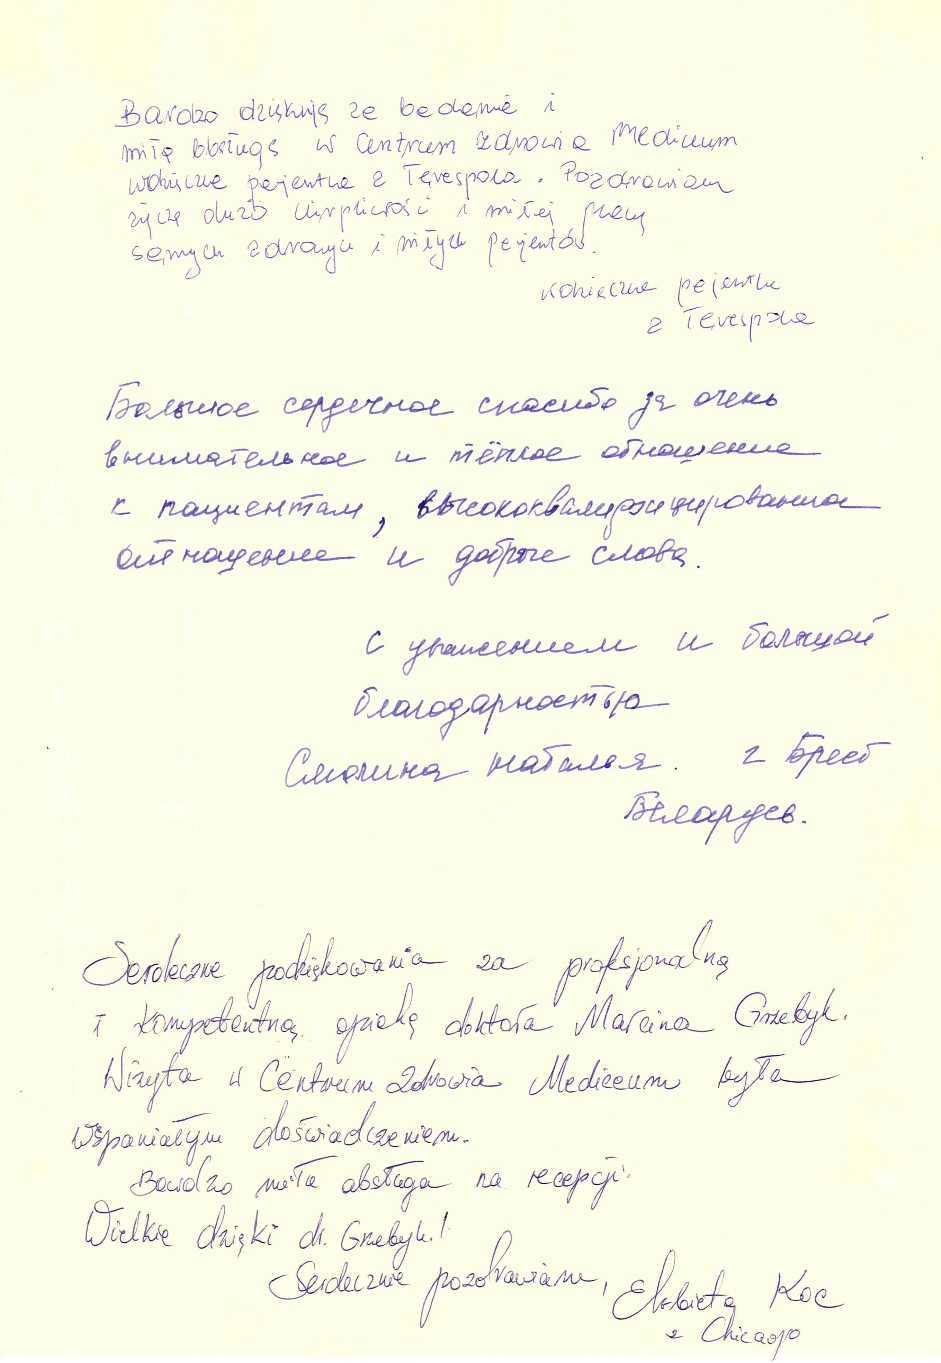 Bardzo dziękuję za badanie i
miłą obsługę w Centrum Zdrowia Mediceum
wdzięczna pacjentka z Terespola. Pozdrawiam
życzę dużo cierpliwości i miłej pracy
samych zdrowych i miłych pacjentów.
pacjentka
z Terespola
Большое сердечное спасибо за очень
внимательное и тёплое отношение
к пациентам, высококвалифицированное
отношение и добрые слова.
С уважением и большой
благодарностью
Смолина Наталья. г Брест
Беларусь.
Serdeczne podziękowania za profesjonalną
i kompetentną opiekę doktora Marcina Grzebyk.
Wizyta w Centrum Zdrowia Mediceum była
wspaniałym doświadczeniem.
Bardzo miła obsługa na recepcji.
Wielkie dzięki dr. Grzebyk!
Serdecznie pozdrawiam, Elżbieta Koc
z Chicago